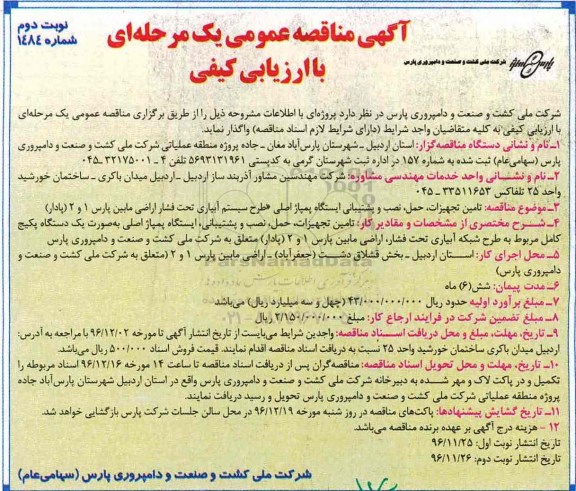 نوبت دوم
شماره ۱۴۸۴
آگهی مناقصه عمومی یک مرحله‌ای
با ارزیابی کیفی
شرکت ملی کشت و صنعت و دامپروری پارس
شرکت ملی کشت و صنعت و دامپروری پارس در نظر دارد پروژه‌ای با اطلاعات مشروحه ذیل را از طریق برگزاری مناقصه عمومی یک مرحله‌ای
با ارزیابی کیفی به کلیه متقاضیان واجد شرایط (دارای شرایط لازم اسناد مناقصه) واگذار نماید.
۱ـ نام و نشانی دستگاه مناقصه‌گزار: استان اردبیل ـ شهرستان پارس‌آباد مغان ـ جاده پروژه منطقه عملیاتی شرکت ملی کشت و صنعت و دامپروری
پارس (سهامی‌عام) ثبت شده به شماره ۱۵۷ در اداره ثبت شهرستان گرمی به کدپستی ۵۶۹۳۱۳۱۹۶۱ تلفن ۴ ـ ۳۲۱۷۵۰۰۱ـ۰۴۵
۲ـ نام و نشانی واحد خدمات مهندسی مشاوره: شرکت مهندسین مشاور آذربند ساز اردبیل ـ اردبیل میدان باکری ـ ساختمان خورشید
واحد ۲۵ تلفاکس ۳۳۵۱۱۶۵۳ ـ ۰۴۵
۳ـ موضوع مناقصه: تامین تجهیزات، حمل، نصب و پشتیبانی ایستگاه پمپاژ اصلی «طرح سیستم آبیاری تحت فشار اراضی مابین پارس ۱ و ۲ (پادار)
۴ـ شرح مختصری از مشخصات و مقادیر کار: تامین تجهیزات، حمل، نصب و پشتیبانی، ایستگاه پمپاژ اصلی به‌صورت یک دستگاه پکیج
کامل مربوط به طرح شبکه آبیاری تحت فشار، اراضی مابین پارس ۱ و ۲ (پادار) متعلق به شرکت ملی کشت و صنعت و دامپروری پارس
۵ـ محل اجرای کار: استان اردبیل ـ بخش قشلاق دشت (جعفرآباد) ـ اراضی مابین پارس ۱ و ۲ (متعلق به شرکت ملی کشت و صنعت و
دامپروری پارس)
۶ـ مدت پیمان: شش (۶) ماه
۷ـ مبلغ برآورد اولیه حدود ریال ۴۳/۰۰۰/۰۰۰/۰۰۰ (چهل و سه میلیارد ریال) می‌باشد
۸ـ مبلغ تضمین شرکت در فرایند ارجاع کار: مبلغ ۲/۱۵۰/۰۰۰/۰۰۰ ریال
۹ـ تاریخ، مهلت، مبلغ و محل دریافت اسناد مناقصه: واجدین شرایط می‌بایست از تاریخ انتشار آگهی تا مورخه ۹۶/۱۲/۰۲ با مراجعه به آدرس:
اردبیل میدان باکری ساختمان خورشید واحد ۲۵ نسبت به دریافت اسناد مناقصه اقدام نمایند. قیمت فروش اسناد ۵۰۰/۰۰۰ ریال می‌باشد.
۱۰ـ تاریخ، مهلت و محل تحویل اسناد مناقصه: مناقصه‌گران پس از دریافت اسناد مناقصه تا ساعت ۱۴ مورخه ۹۶/۱۲/۱۶ اسناد مربوطه را
تکمیل و در پاکت لاک و مهر شده به دبیرخانه شرکت ملی کشت و صنعت و دامپروری پارس واقع در استان اردبیل شهرستان پارس‌آباد جاده
پروژه منطقه عملیاتی شرکت ملی کشت و صنعت و دامپروری پارس تحویل و رسید دریافت نمایند.
۱۱ـ تاریخ گشایش پیشنهادها: پاکت‌های مناقصه در روز شنبه مورخه ۹۶/۱۲/۱۹ در محل سالن جلسات شرکت پارس بازگشایی خواهد شد.
۱۲ - هزینه درج آگهی بر عهده برنده مناقصه می‌باشد.
تاریخ انتشار نوبت اول: ۹۶/۱۱/۲۵
تاریخ انتشار نوبت دوم: ۹۶/۱۱/۲۶
شرکت ملی کشت و صنعت و دامپروری پارس (سهامی‌عام)